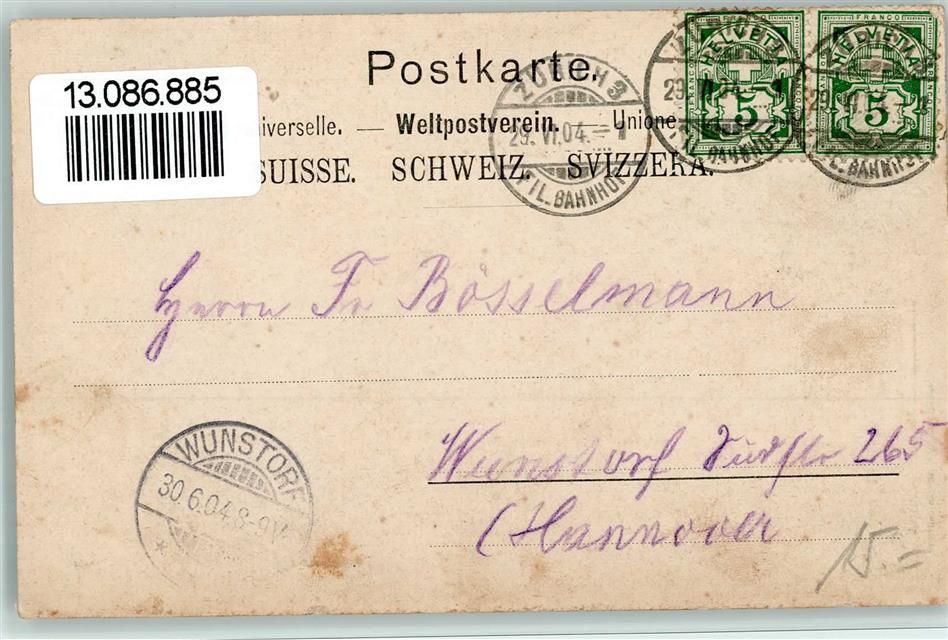 Postkarte.
13.086.885
iverselle. — Weltpostverein. — Unione
SUISSE. SCHWEIZ. SVIZZERA.
FRANCO
HELVETIA
5
FRANCO
HELVETIA
5
ZÜRICH 3
29.VI.04.-1
FIL. BAHNHOF
Herrn Fr Bösselmann
Wunstorf Südstr 265
(Hannover
WUNSTORF
30.6.04.8-9V.
15.=